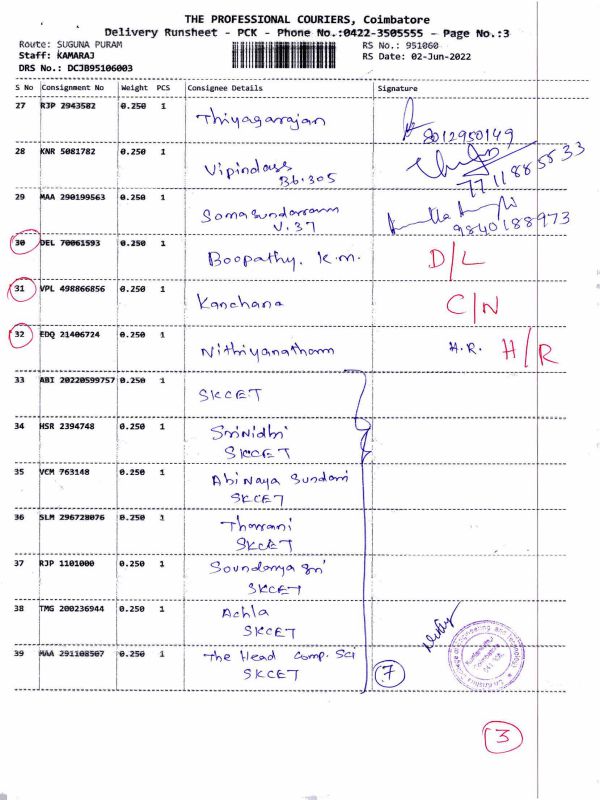 THE PROFESSIONAL COURIERS, Coimbatore
Delivery Runsheet - PCK - Phone No.:0422-3505555 - Page No.:3
Route: SUGUNA PURAM RS No.: 951060
Staff: KAMARAJ RS Date: 02-Jun-2022
DRS No.: DCJB95106003
S No Consignment No Weight PCS Consignee Details Signature
27 RJP 2943582 0.250 1 Thiyagarajan
8012950149
28 KNR 5081782 0.250 1 Vipindass
Bb.305
7711885533
29 MAA 290199563 0.250 1 Somasundaram
V.37
9840188973
30 DEL 70061593 0.250 1 Boopathy. K.M. D/L
31 VPL 498866856 0.250 1 Kanchana C/N
32 EDQ 21406724 0.250 1 Nithiyanatham H.R. H/R
33 ABI 20220599757 0.250 1 SKCET
34 HSR 2394748 0.250 1 SriNidhi
SKCET
35 VCM 763148 0.250 1 Abinaya Sundari
SKCET
36 SLM 296728076 0.250 1 Tharani
SKCET
37 RJP 1101000 0.250 1 Soundarya Sri
SKCET
38 TMG 200236944 0.250 1 Achla
SKCET
39 MAA 291108507 0.250 1 The Head Comp. Sci
SKCET
7
3